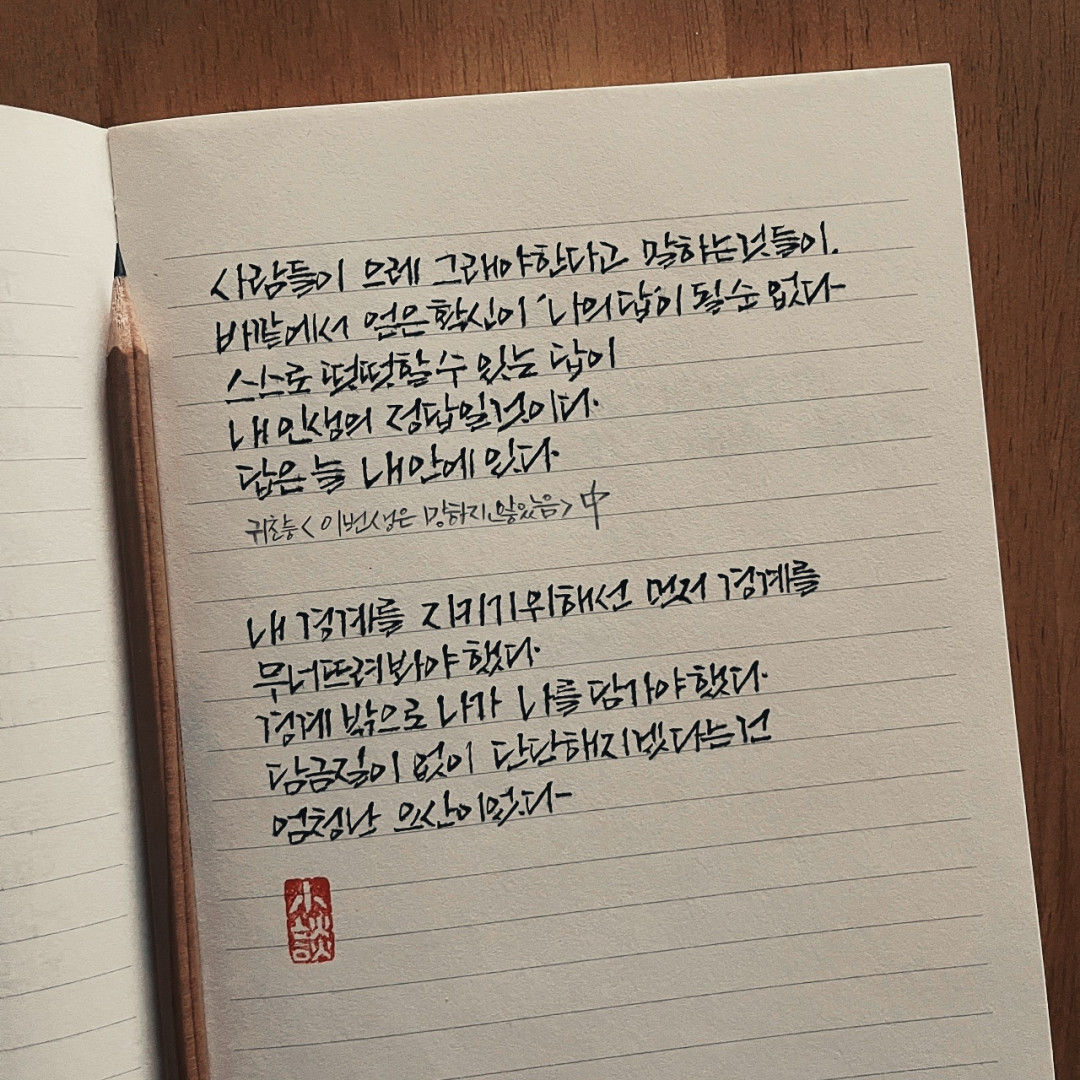 사람들이 으레 그래야한다고 말하는것들이,
바깥에서 얻은 확신이 '나의 답'이 될 순 없다-
스스로 떳떳할 수 있는 답이
내 인생의 정답일것이다.
답은 늘 내 안에 있다.
귀찮 <이번 생은 망하지 않았음> 中
내 경계를 지키기위해선 먼저 경계를
무너뜨려봐야했다.
경계 밖으로 나가 나를 담가야했다.
담금질이 없이 단단해지겠다는건
엄청난 오산이었다-
小談